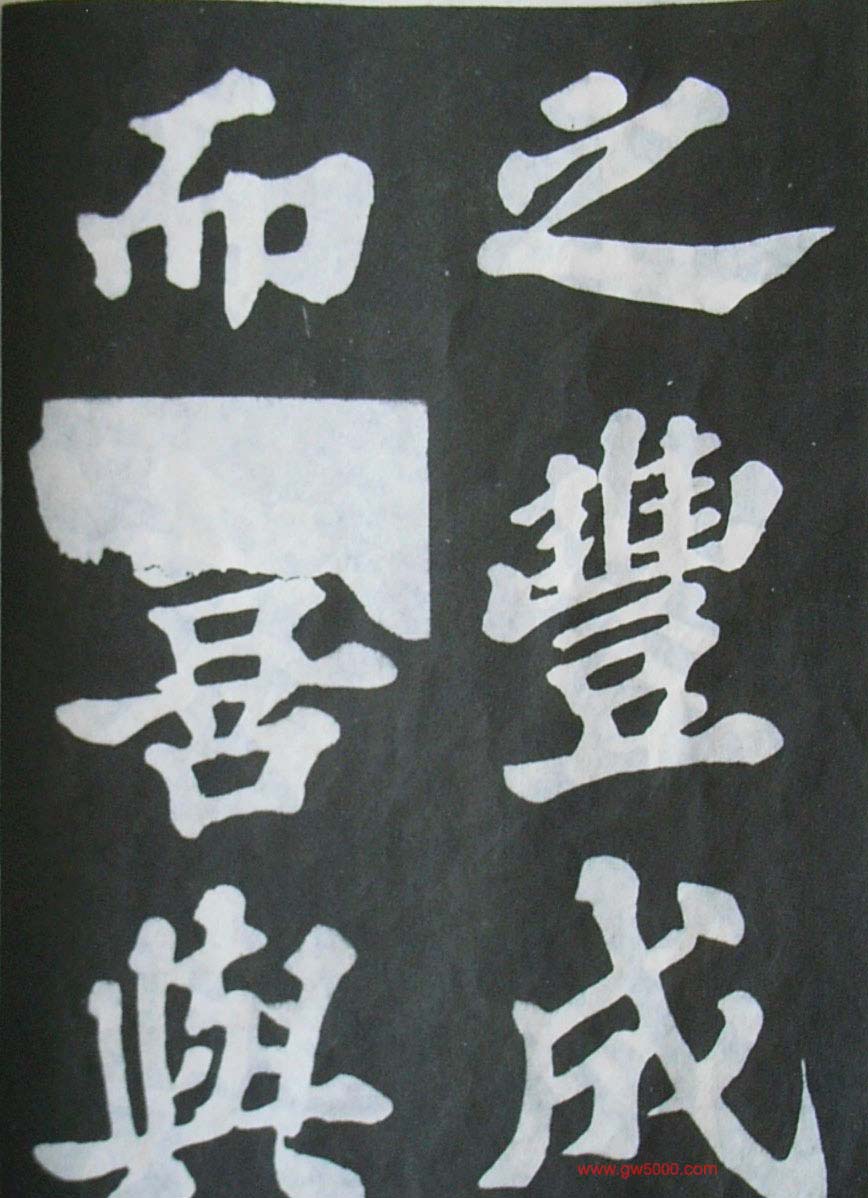 之豐成
而喜與
www.gw5000.com